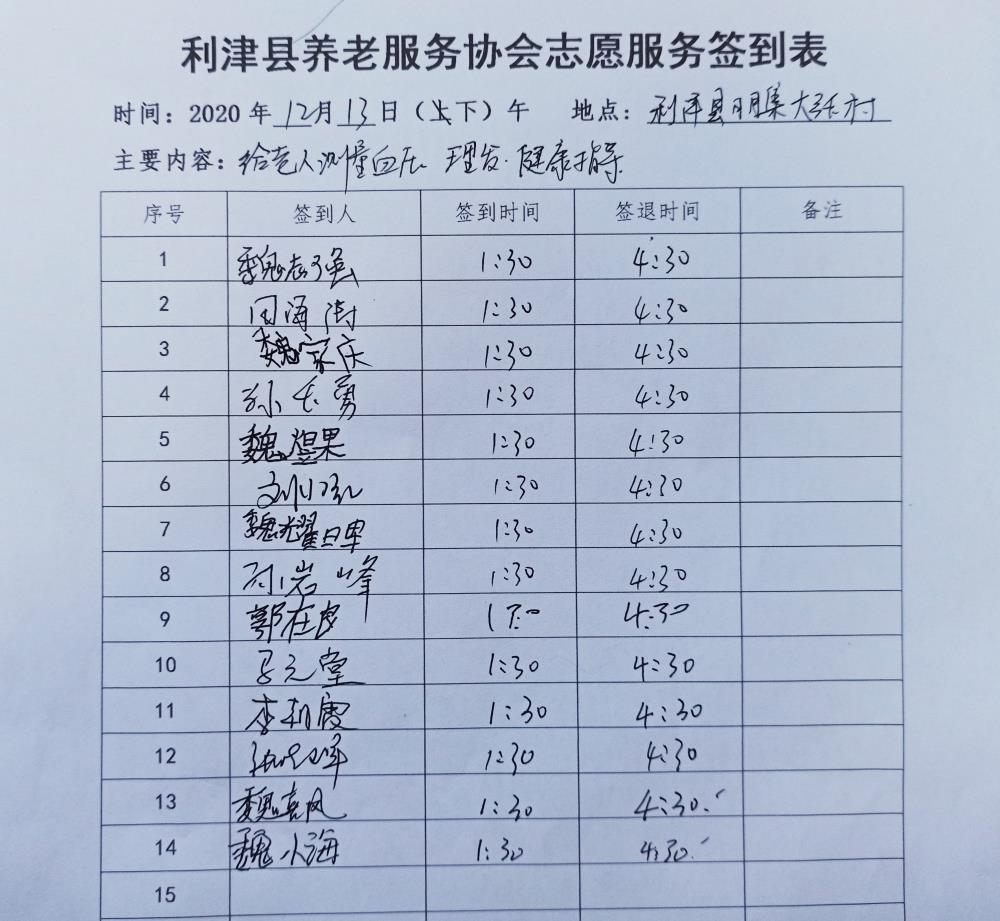 利津县养老服务协会志愿服务签到表
时间：2020年12月13日（上下）午 地点：利津县明集大张村
主要内容：给老人测量血压 理发 健康指导
序号 签到人 签到时间 签退时间 备注
1 魏志强 1:30 4:30
2 1:30 4:30
3 魏家庆 1:30 4:30
4 孙长勇 1:30 4:30
5 魏煜果 1:30 4:30
6 1:30 4:30
7 魏耀 1:30 4:30
8 岩峰 1:30 4:30
9 郭在良 4:30
10 元堂 1:30 4:30
11 李朝霞 1:30 4:30
12 1:30 4:30
13 魏春风 1:30 4:30
14 魏小海 1:30 4:30
15